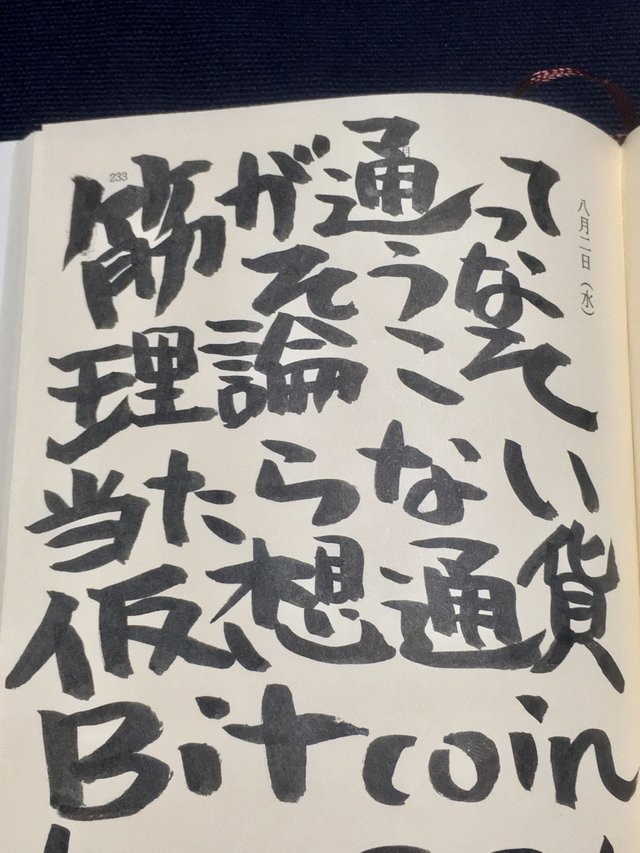 233
八月二日(水)
筋が通って
そうな
理論こそ
当たらない
仮想通貨
Bitcoin